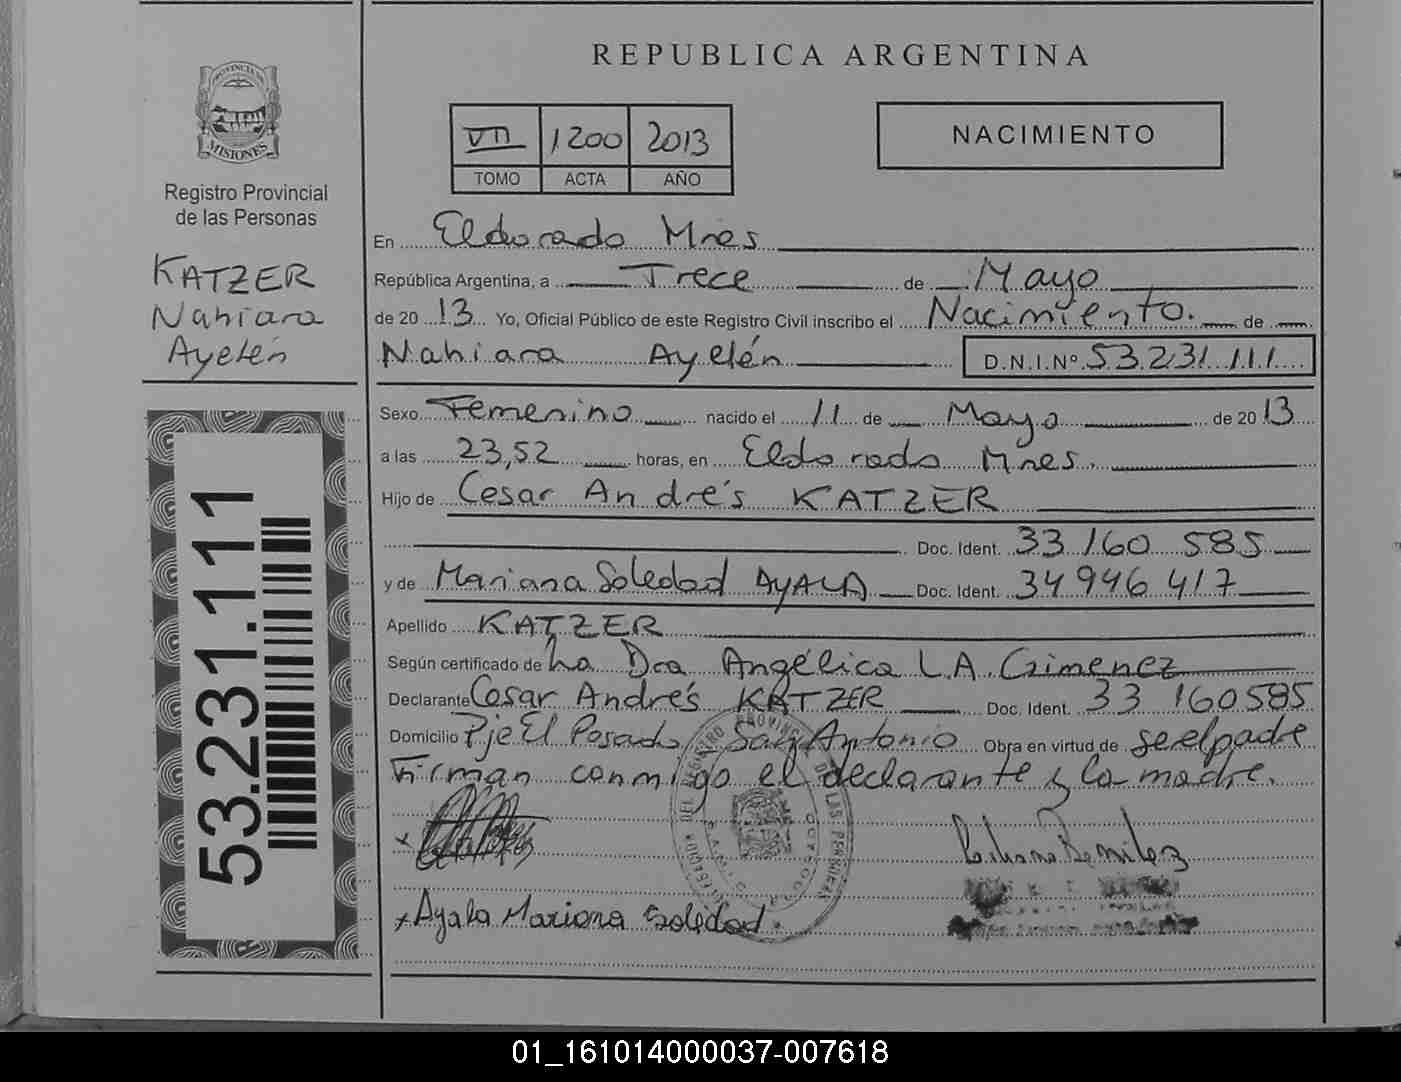 REPUBLICA ARGENTINA
PROVINCIA DE
MISIONES
Registro Provincial
de las Personas
VII 1200 2013
TOMO ACTA AÑO
NACIMIENTO
KATZER
Nahiara
Ayelén
En Eldorado Mnes
República Argentina, a Trece de Mayo
de 20 13 Yo, Oficial Público de este Registro Civil inscribo el Nacimiento. de
Nahiara Ayelén D.N.I.Nº 53.231.111
Sexo Femenino nacido el 11 de Mayo de 20 13
a las 23,52 horas, en Eldorado Mnes.
Hijo de Cesar Andrés KATZER
Doc. Ident. 33 160 585
y de Mariana Soledad AYALA Doc. Ident. 34 946 417
Apellido KATZER
Según certificado de La Dra Angélica L.A. Gimenez
Declarante Cesar Andrés KATZER Doc. Ident. 33 160585
Domicilio Pje El Posado San Antonio Obra en virtud de se el padre
Firman conmigo el declarante y la madre.
53.231.111
x
Benitez
x Ayala Mariana Soledad
01_161014000037-007618